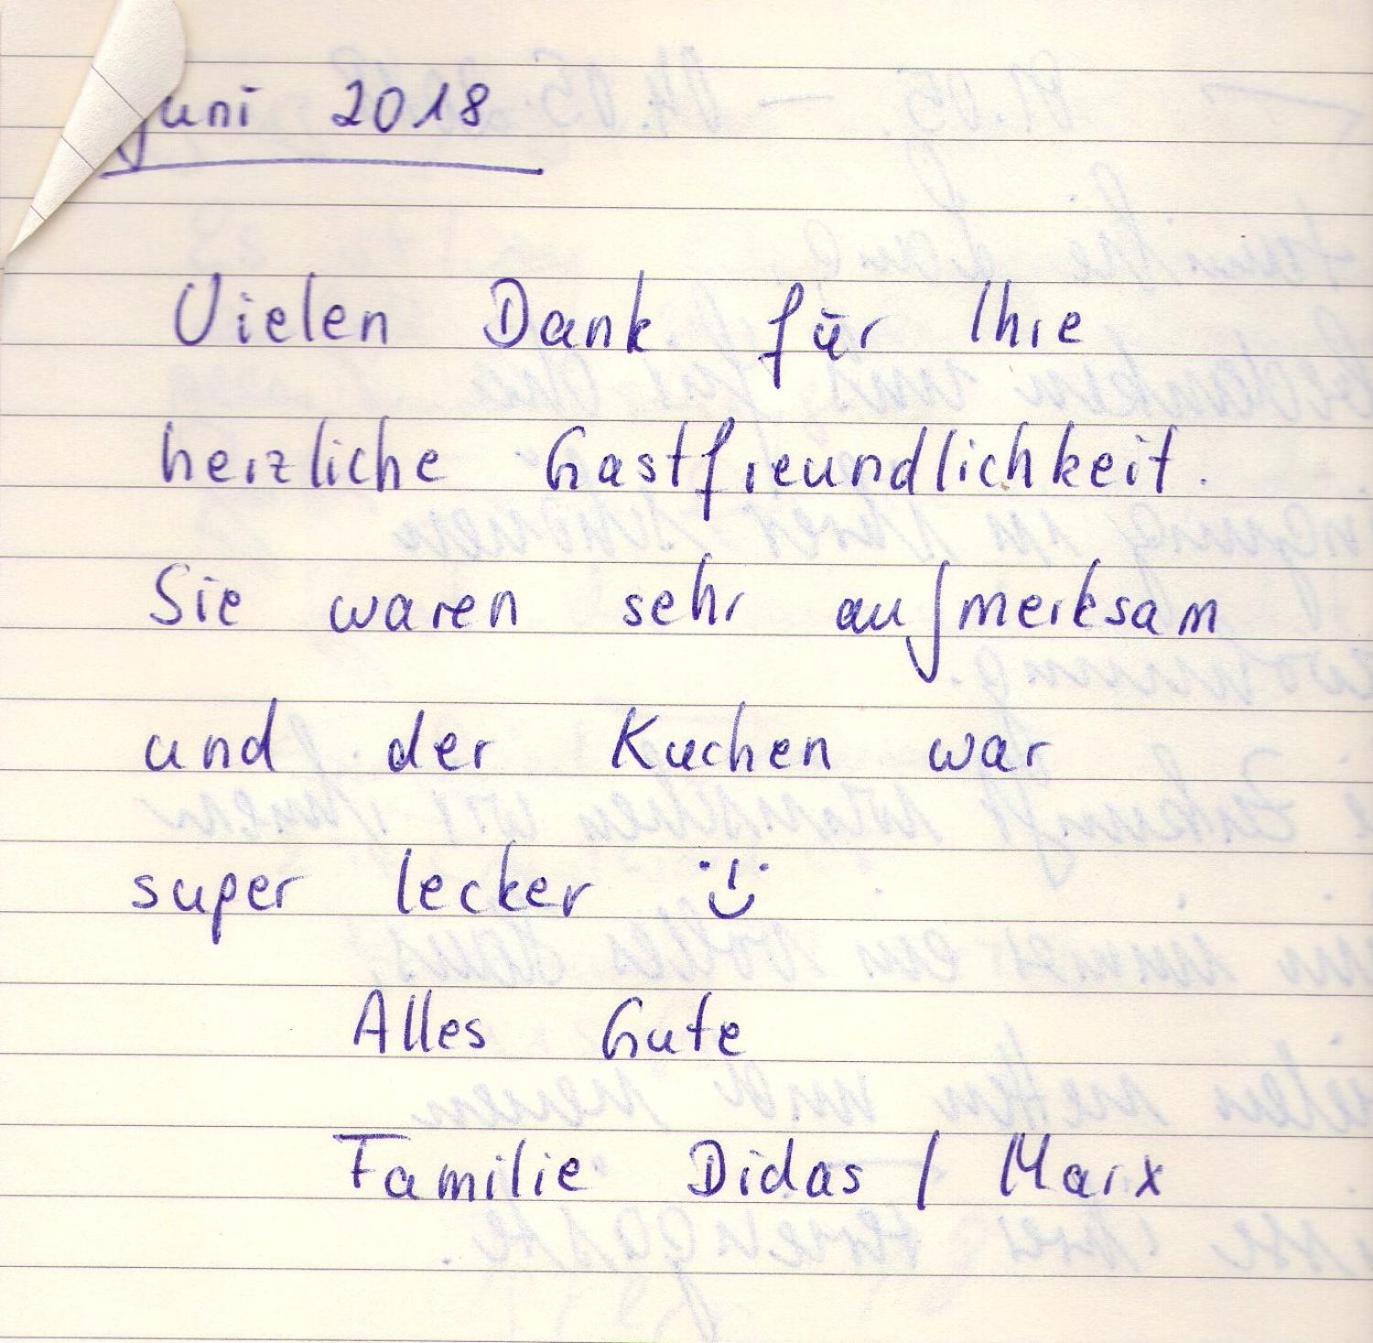 Juni 2018
Vielen Dank für Ihre
herzliche Gastfreundlichkeit.
Sie waren sehr aufmerksam
und der Kuchen war
super lecker
Alles Gute
Familie Didas / Marx